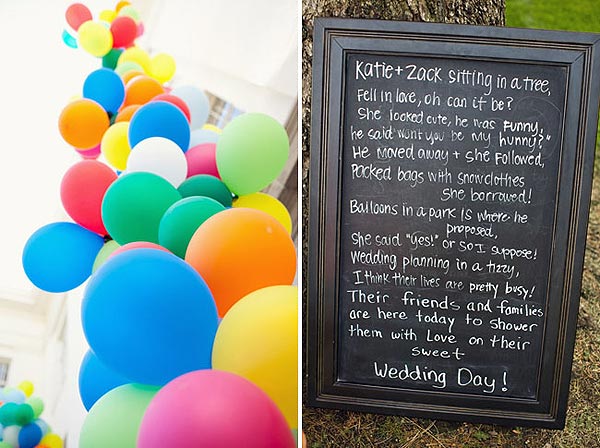 Katie + Zack sitting in a tree,
Fell in love, oh can it be?
She looked cute, he was funny,
he said "won't you be my hunny?"
He moved away + she followed,
Packed bags with snowclothes
she borrowed!
Balloons in a park is where he
proposed,
She said "yes!" or so I suppose!
Wedding planning in a tizzy,
I think their lives are pretty busy!
Their friends and families
are here today to shower
them with Love on their
sweet
Wedding Day!